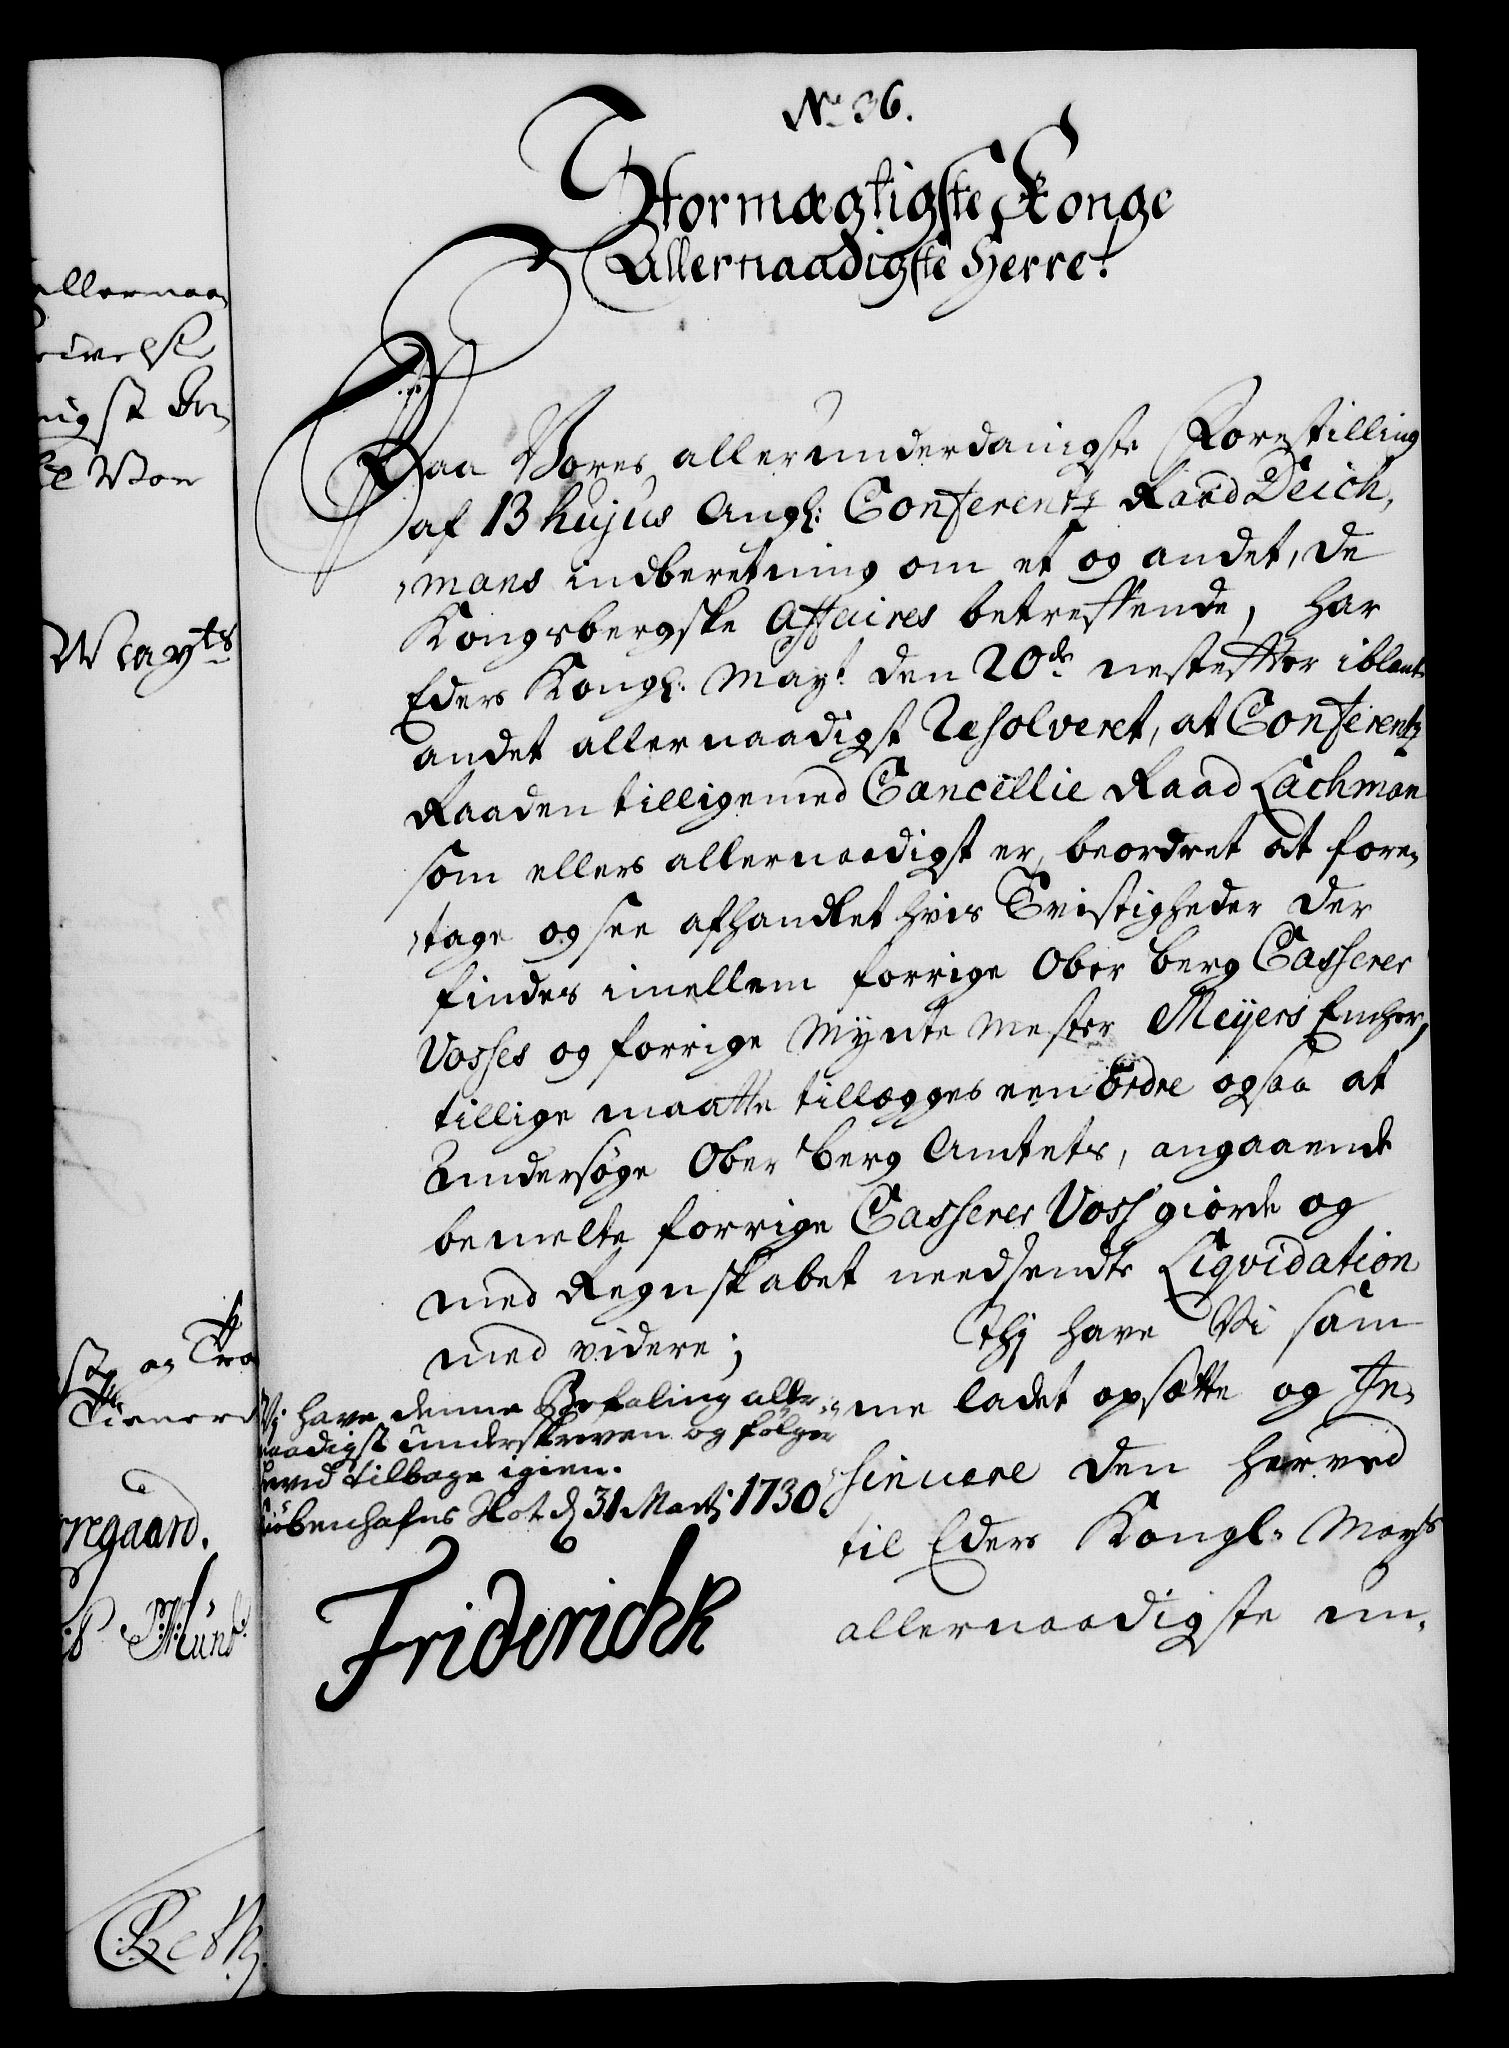 No 36.
Stormægtigste Konge
Allernaadigste Herre!
Paa Vores allerunderdanigste Forestilling
af 13 hujus angl: Conferentz Raad Deich,
mans indberetning om et og andet, de
Kongsbergske Affaires betreffende, har
Eders Kongl: May:t den 20de nesteffter iblant
andet allernaadigst Resolveret, at Conferentz
Raaden tilligemed Cancellie Raad Lachman
som ellers allernaadigst er beordret at fore,
tage og see afhandlet hvis Tvistigheder der
findes imellem forrige Ober Berg Casserer
Vosses og forrige Mynte Mester Meyers Encher,
tillige maatte tillegges een Ordre ogsaa at
Undersøge Ober Berg Amtets, angaaende
bemelte forrige Casserer Voss giorde og
med Regnskabet needsendte Liqvidation
med videre;
Thj have Vi sam
me ladet opsætte og In,
sinuere den herved
til Eders Kongl: Mayts
allernaadigste un,
Vj have denne Befaling aller-
naadigst underskreven og følger
herved tilbage igien.
Kiøbenhafns Slot d 31 Martj 1730
Friderich R
allernaa,
rivelse
nigst
Mayts
og Tro
Tienere
rregaard.